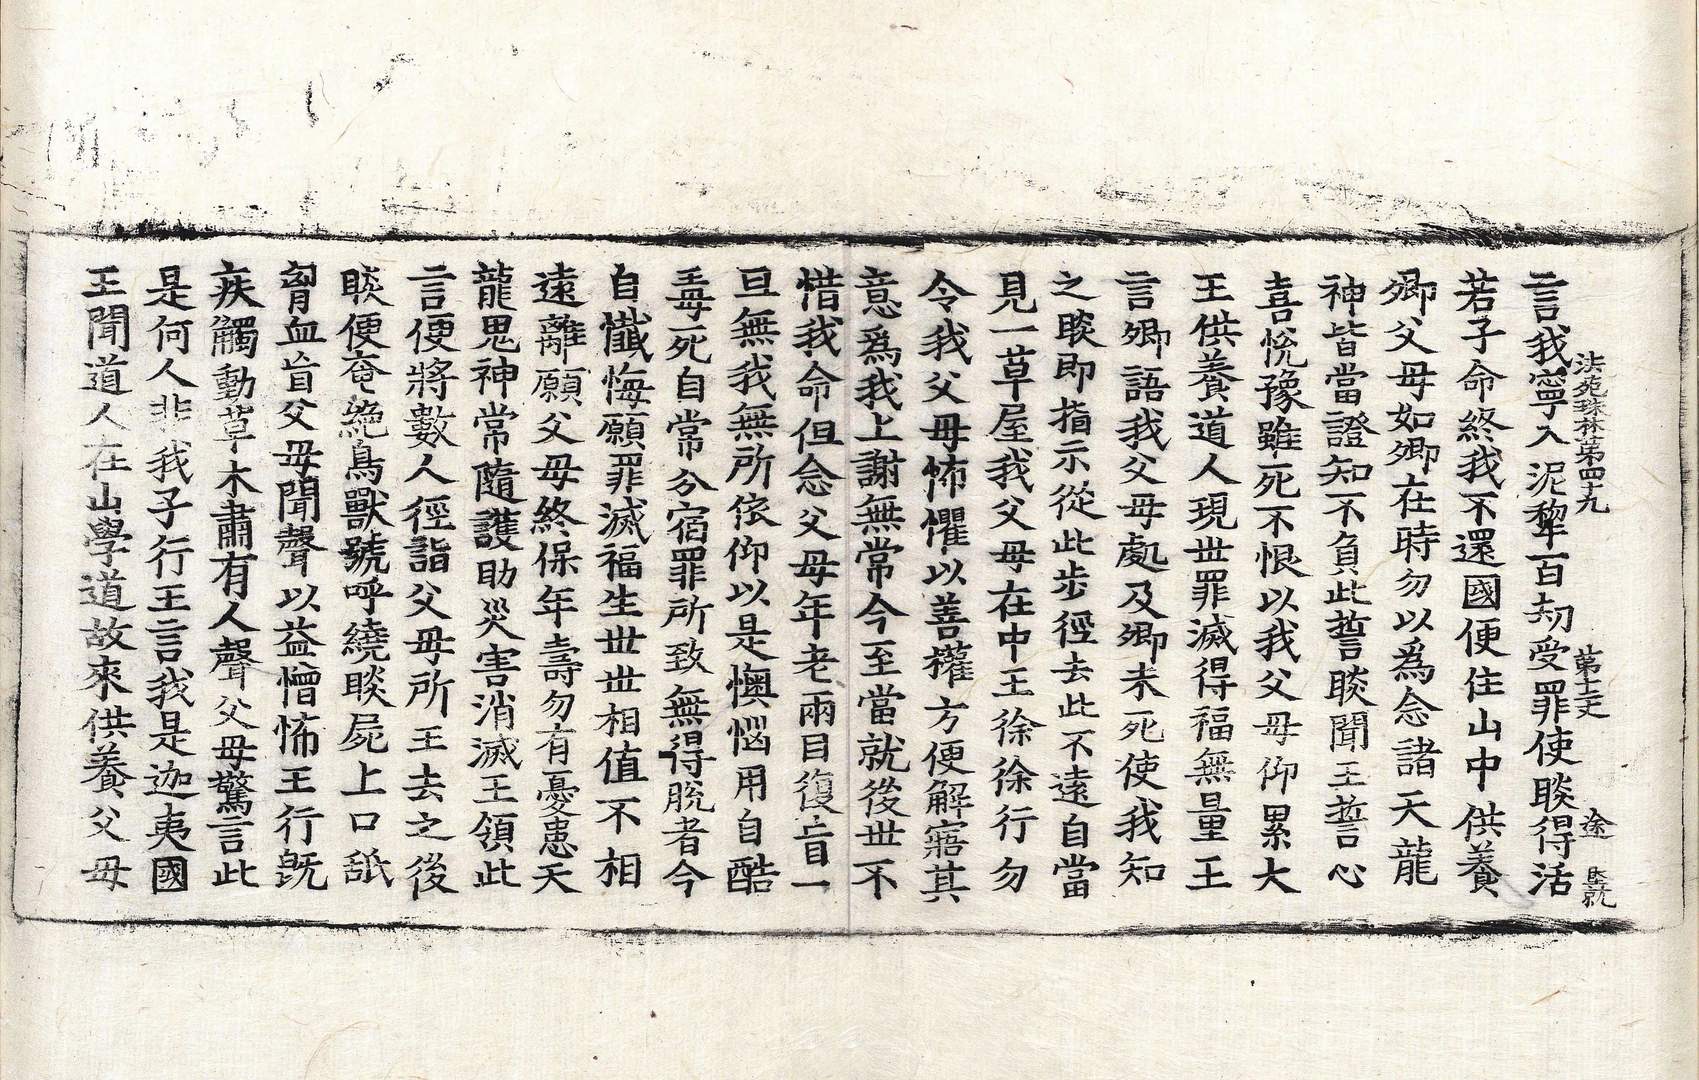 法苑珠林第四十九 第十七丈 塗
言我寧入泥犂百劫受罪使睒得活
若子命終我不還國便住山中供養
卿父母如卿在時勿以爲念諸天龍
神皆當證知不負此誓睒聞王誓心
喜悅豫雖死不恨以我父母仰累大
王供養道人現世罪滅得福無量王
言卿語我父母處及卿未死使我知
之睒即指示從此步徑去此不遠自當
見一草屋我父母在中王徐徐行勿
令我父母怖懼以善權方便解寤其
意爲我上謝無常今至當就後世不
惜我命但念父母年老兩目復盲一
旦無我無所依仰以是懊惱用自酷
毒死自常分宿罪所致無得脫者今
自懺悔願罪滅福生世世相值不相
遠離願父母終保年壽勿有憂患天
龍思神常隨護助災害消滅王領此
言便將數人徑詣父母所王去之後
睒便奄絶鳥獸號呼繞睒屍上口舐
胷血盲父母聞聲以益憎怖王行旣
疾觸動草木肅有人聲父母驚言此
是何人非我子行王言我是迦夷國
王聞道人在山學道故來供養父母